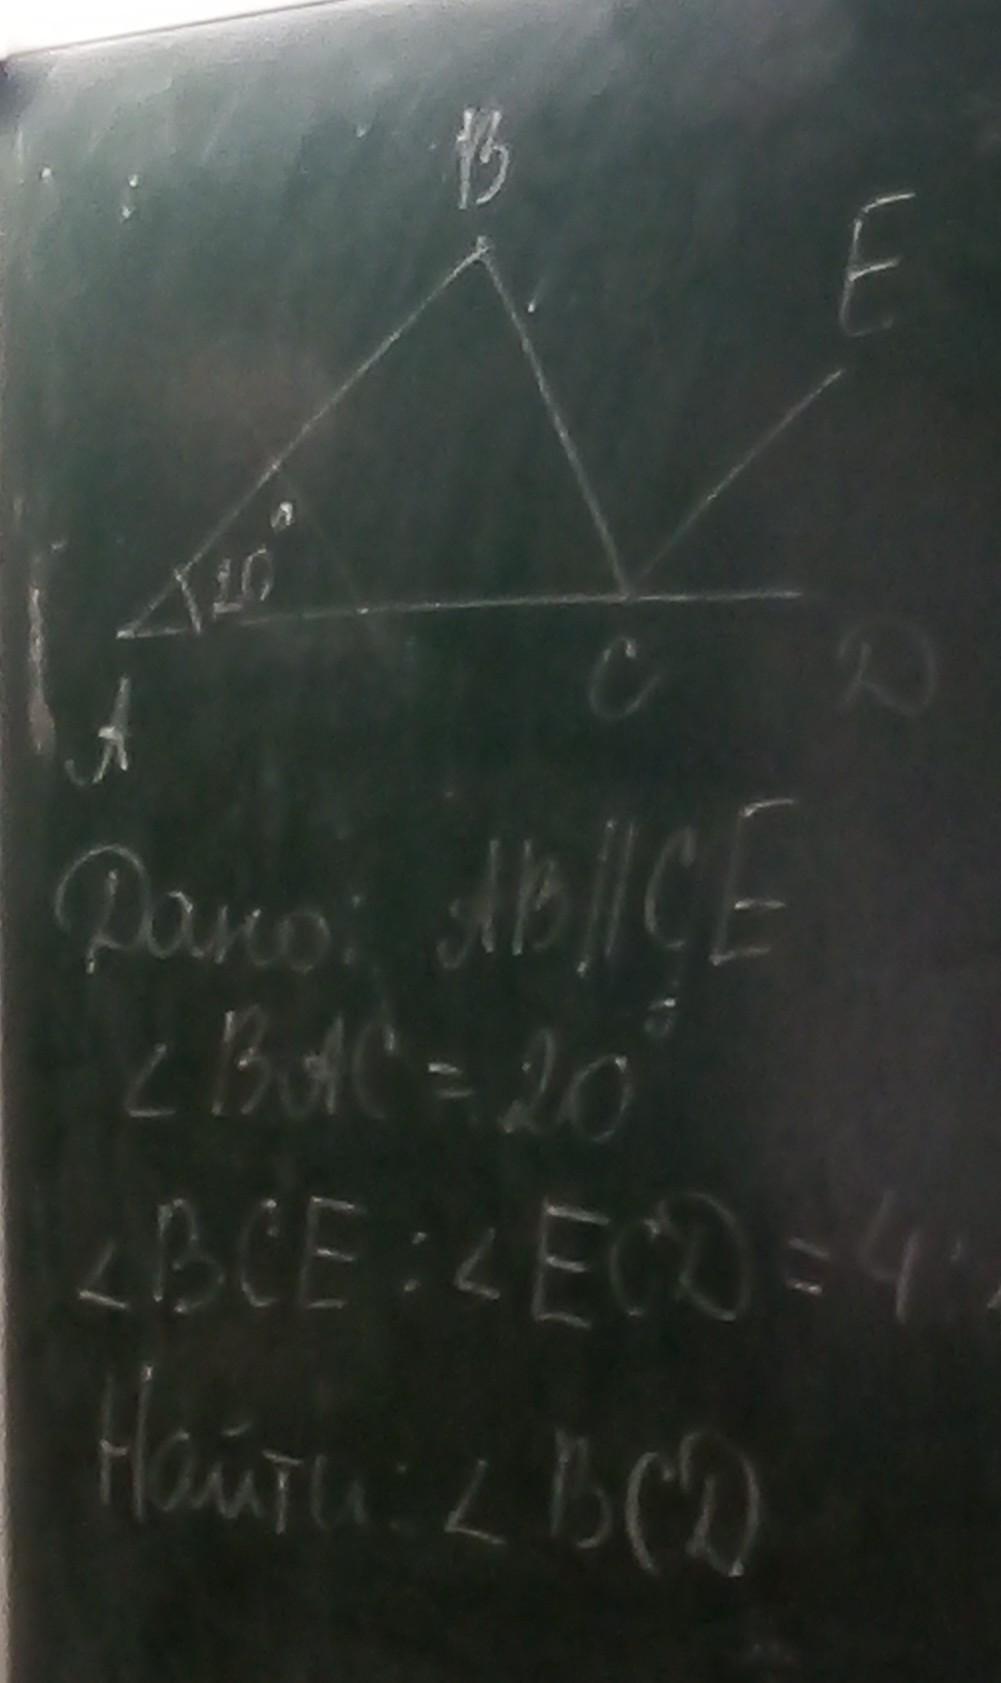 B
E
20°
C
D
A
Дано: AB||CE
∠BAC = 20°
∠BCE : ∠ECD = 4 :
Найти: ∠BCD